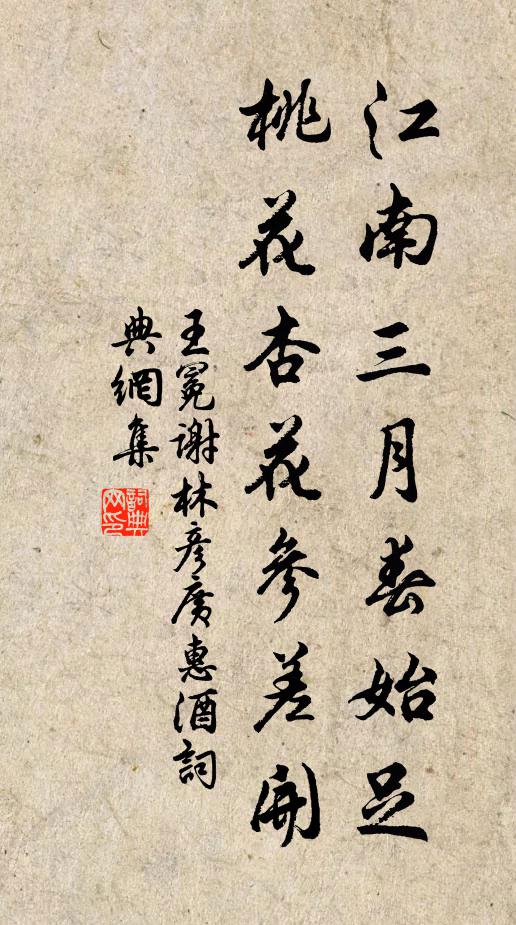 江南三月春始足
桃花杏花參差開
王冕謝林彦廣惠酒詞
典網集
詞典网印